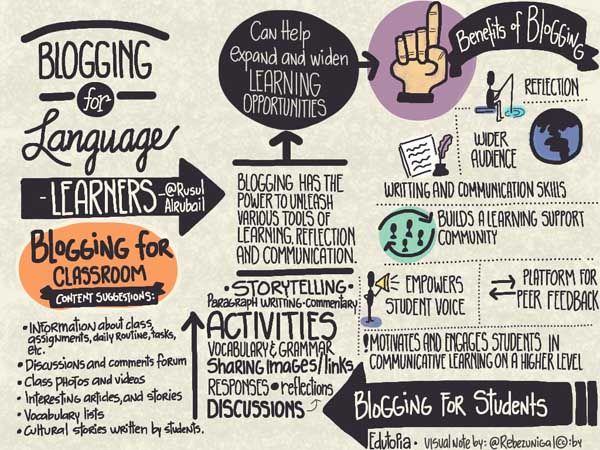 BLOGGING
for
Language
-LEARNERS-@Rusul
Alrubail
Blogging for
CLASSROOM
CONTENT SUGGESTIONS:
• Information about class,
assignments, daily routine, tasks,
etc.
• Discussions and comments forum
• Class photos and videos
• Interesting articles, and stories
• Vocabulary lists
• Cultural stories written by students.
Can Help
expand and widen
LEARNING
OPPORTUNITIES
BLOGGING HAS THE
POWER TO UNLEASH
VARIOUS TOOLS OF
LEARNING, REFLECTION
AND COMMUNICATION.
• STORYTELLING •
Paragraph writing • commentary
ACTIVITIES
VOCABULARY & GRAMMAR
Sharing Images/links
RESPONSES • reflections
DISCUSSIONS
Benefits of Blogging
REFLECTION
WIDER
AUDIENCE
WRITING AND COMMUNICATION SKILLS
BUILDS A LEARNING SUPPORT
COMMUNITY
EMPOWERS
STUDENT VOICE
PLATFORM FOR
PEER FEEDBACK
! MOTIVATES AND ENGAGES STUDENTS IN
COMMUNICATIVE LEARNING ON A HIGHER LEVEL
Blogging For Students
Edutopia • Visual note by: @Rebezuniga